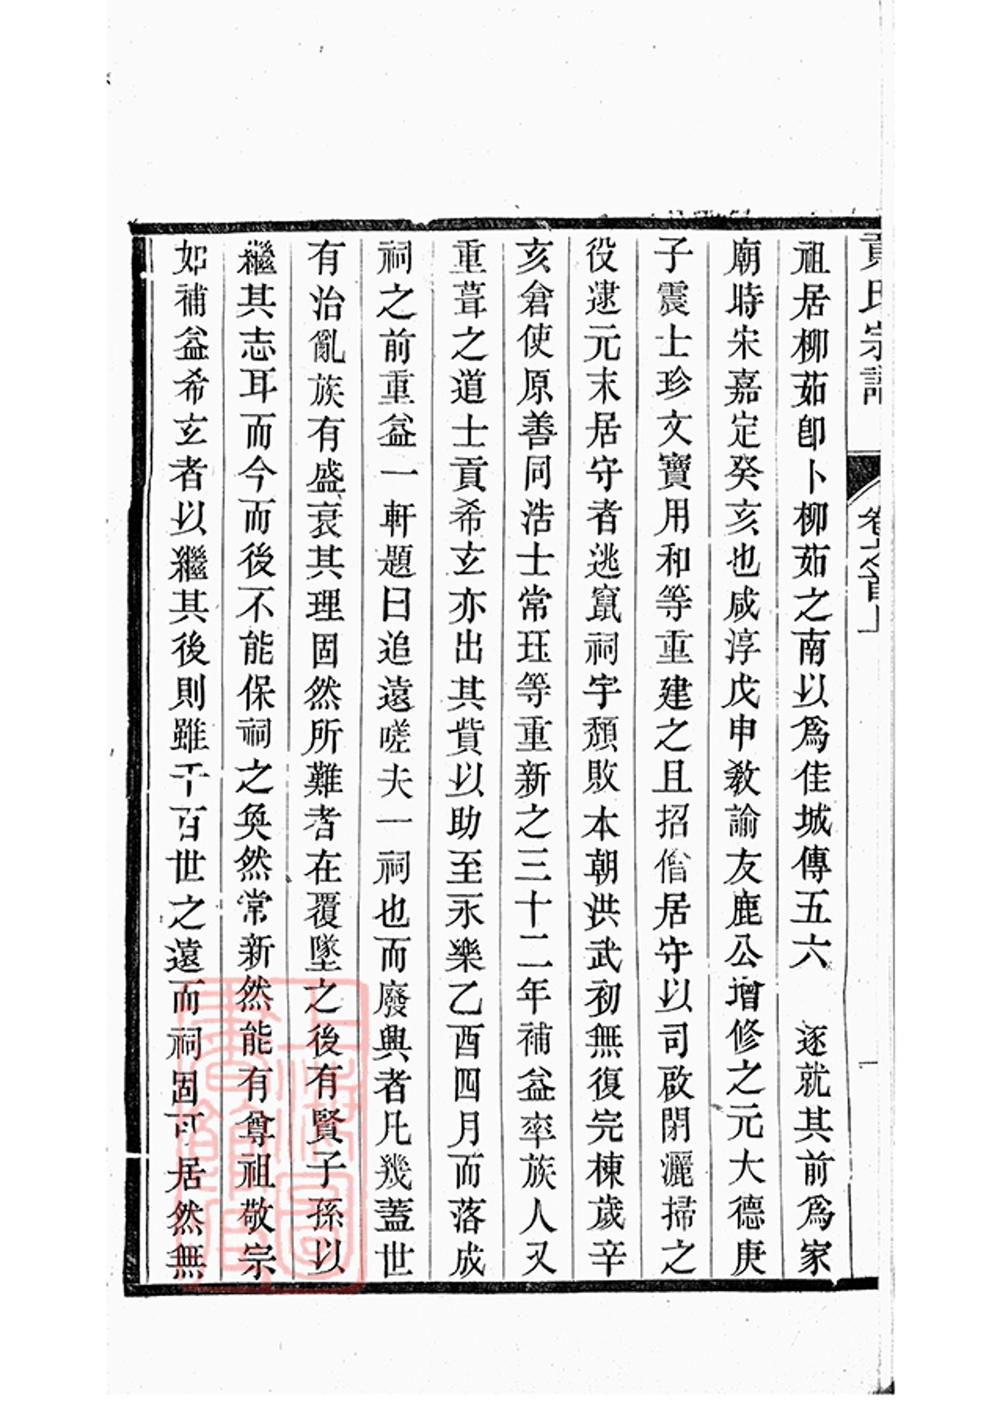 貢氏宗譜
祖居柳茹卽卜柳茹之南以爲佳城傳五六 逐就其前爲家
廟時宋嘉定癸亥也咸淳戊申敎諭友鹿公增修之元大德庚
子震士珍文寶用和等重建之且招僧居守以司啟閉灑掃之
役逮元末居守者逃竄祠宇頹敗本朝洪武初無復完棟歲辛
亥倉使原善同浩士常珏等重新之三十二年補益率族人又
重葺之道士貢希玄亦出其貲以助至永樂乙酉四月而落成
祠之前重益一軒題曰追遠嗟夫一祠也而廢興者凡幾蓋世
有治亂族有盛衰其理固然所難者在覆墜之後有賢子孫以
繼其志耳而今而後不能保祠之奐然常新然能有尊祖敬宗
如補益希玄者以繼其後則雖千百世之遠而祠固可居然無